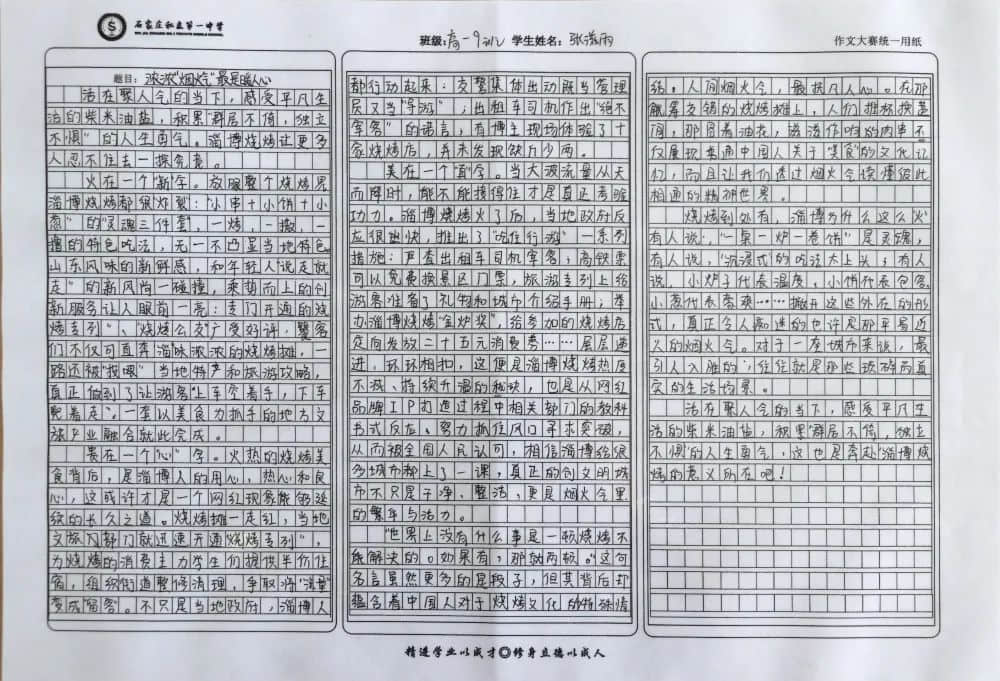 石家庄私立第一中学
班级:高一9班 学生姓名:张潇雨
作文大赛统一用纸
题目:浓浓"烟火气"最是暖人心
活在聚人气的当下,感受平凡生
活的柴米油盐,积累"群居不倚,独立
不惧"的人生勇气。淄博烧烤让更多
人忍不住去一探究竟。
火在一个"新"字。放眼整个烧烤界
淄博烧烤都很炸裂:"小串十小饼十小
葱"的"灵魂三件套",一烤,一撒,一
撸的特色吃法,无一不凸显当地特色
山东风味的新鲜感,和年轻人"说走就
走"的新风尚一碰撞,乘势而上的创
新服务让人眼前一亮:专门开通的烧
烤专列"、"烧烤公交"广受好评,
们不仅可直奔滋味浓浓的烧烤摊,一
路还被"投喂"当地特产和旅游攻略,
真正做到了让游客"上车空着手,下车
兜着走"。一套以美食为抓手的地方文
旅产业融合就此完成。
贵在一个"心"字。火热的烧烤美
食背后,是淄博人的用心,热心和良
心,这或许才是一个网红现象能够延
续的长久之道。烧烤摊一走红,当地
文旅部门就迅速开通"烧烤专列",
为烧烤的消费主力学生们提供半价住
宿,组织街道整修清理,争取将"流量"
变成"留客"。不只是当地政府,淄博人
都行动起来:交警集体出动既当管理
员又当"导游";出租车司机作出"绝不
宰客"的诺言,有博主现场体验了十
家烧烤店,并未发现缺斤少两。
美在一个"直"字。当大波流量从天
而降时,能不能接得住才是真正考验
功力。淄博烧烤火了后,当地政府反
应很迅快,推出了"吃住行游"一系列
措施:严查出租车司机宰客;高铁票
可以免费换景区门票,旅游专列上给
游客准备了礼物和城市介绍手册;举
办淄博烧烤"金炉奖",给参加的烧烤店
定向发放二十五元消费券……层层递
进,环环相扣,这便是淄博烧烤热度
不减、持续升温的秘诀,也是从网红
品牌IP打造过程中相关部门的教科
书式反应、努力抓住风口寻求突破,
从而被全国人民认可,相信淄博给很
多城市都上了一课,真正的创文明城
市不只是干净、整洁、更是烟火气里
的繁华与活力。
"世界上没有什么事是一顿烧烤不
能解决的。如果有,那就两顿。"这句
名言虽然更多的是段子,但其背后却
蕴含着中国人对于烧烤文化的特殊情
结。人间烟火气,最抚凡人心。在那
觥筹交错的烧烤摊上,人们推杯换盏
间,那冒着油花,滋滋作响的肉串不
仅展现普通中国人关于"美食"的文化记
忆,而且让我们透过烟火气读懂彼此
相通的精神世界。
烧烤到处有,淄博为什么这么火
有人说,"一桌一炉一卷饼"是灵魂,
有人说,"沉浸式"的吃法太上头;有人
说,小炉子代表温度,小饼代表包容
小葱代表豪爽……撇开这些外在的形
式,真正令人痴迷的也许是那平易近
人的烟火气。对于一座城市来说,最
引人入胜的,往往就是那些琐碎而真
实的生活场景。
活在聚人气的当下,感受平凡生
活的柴米油盐,积累"群居不倚,独立
不惧的人生勇气,这也是奔赴"淄博烧
烤的意义所在吧!
精进学业以成才 修身立德以成人